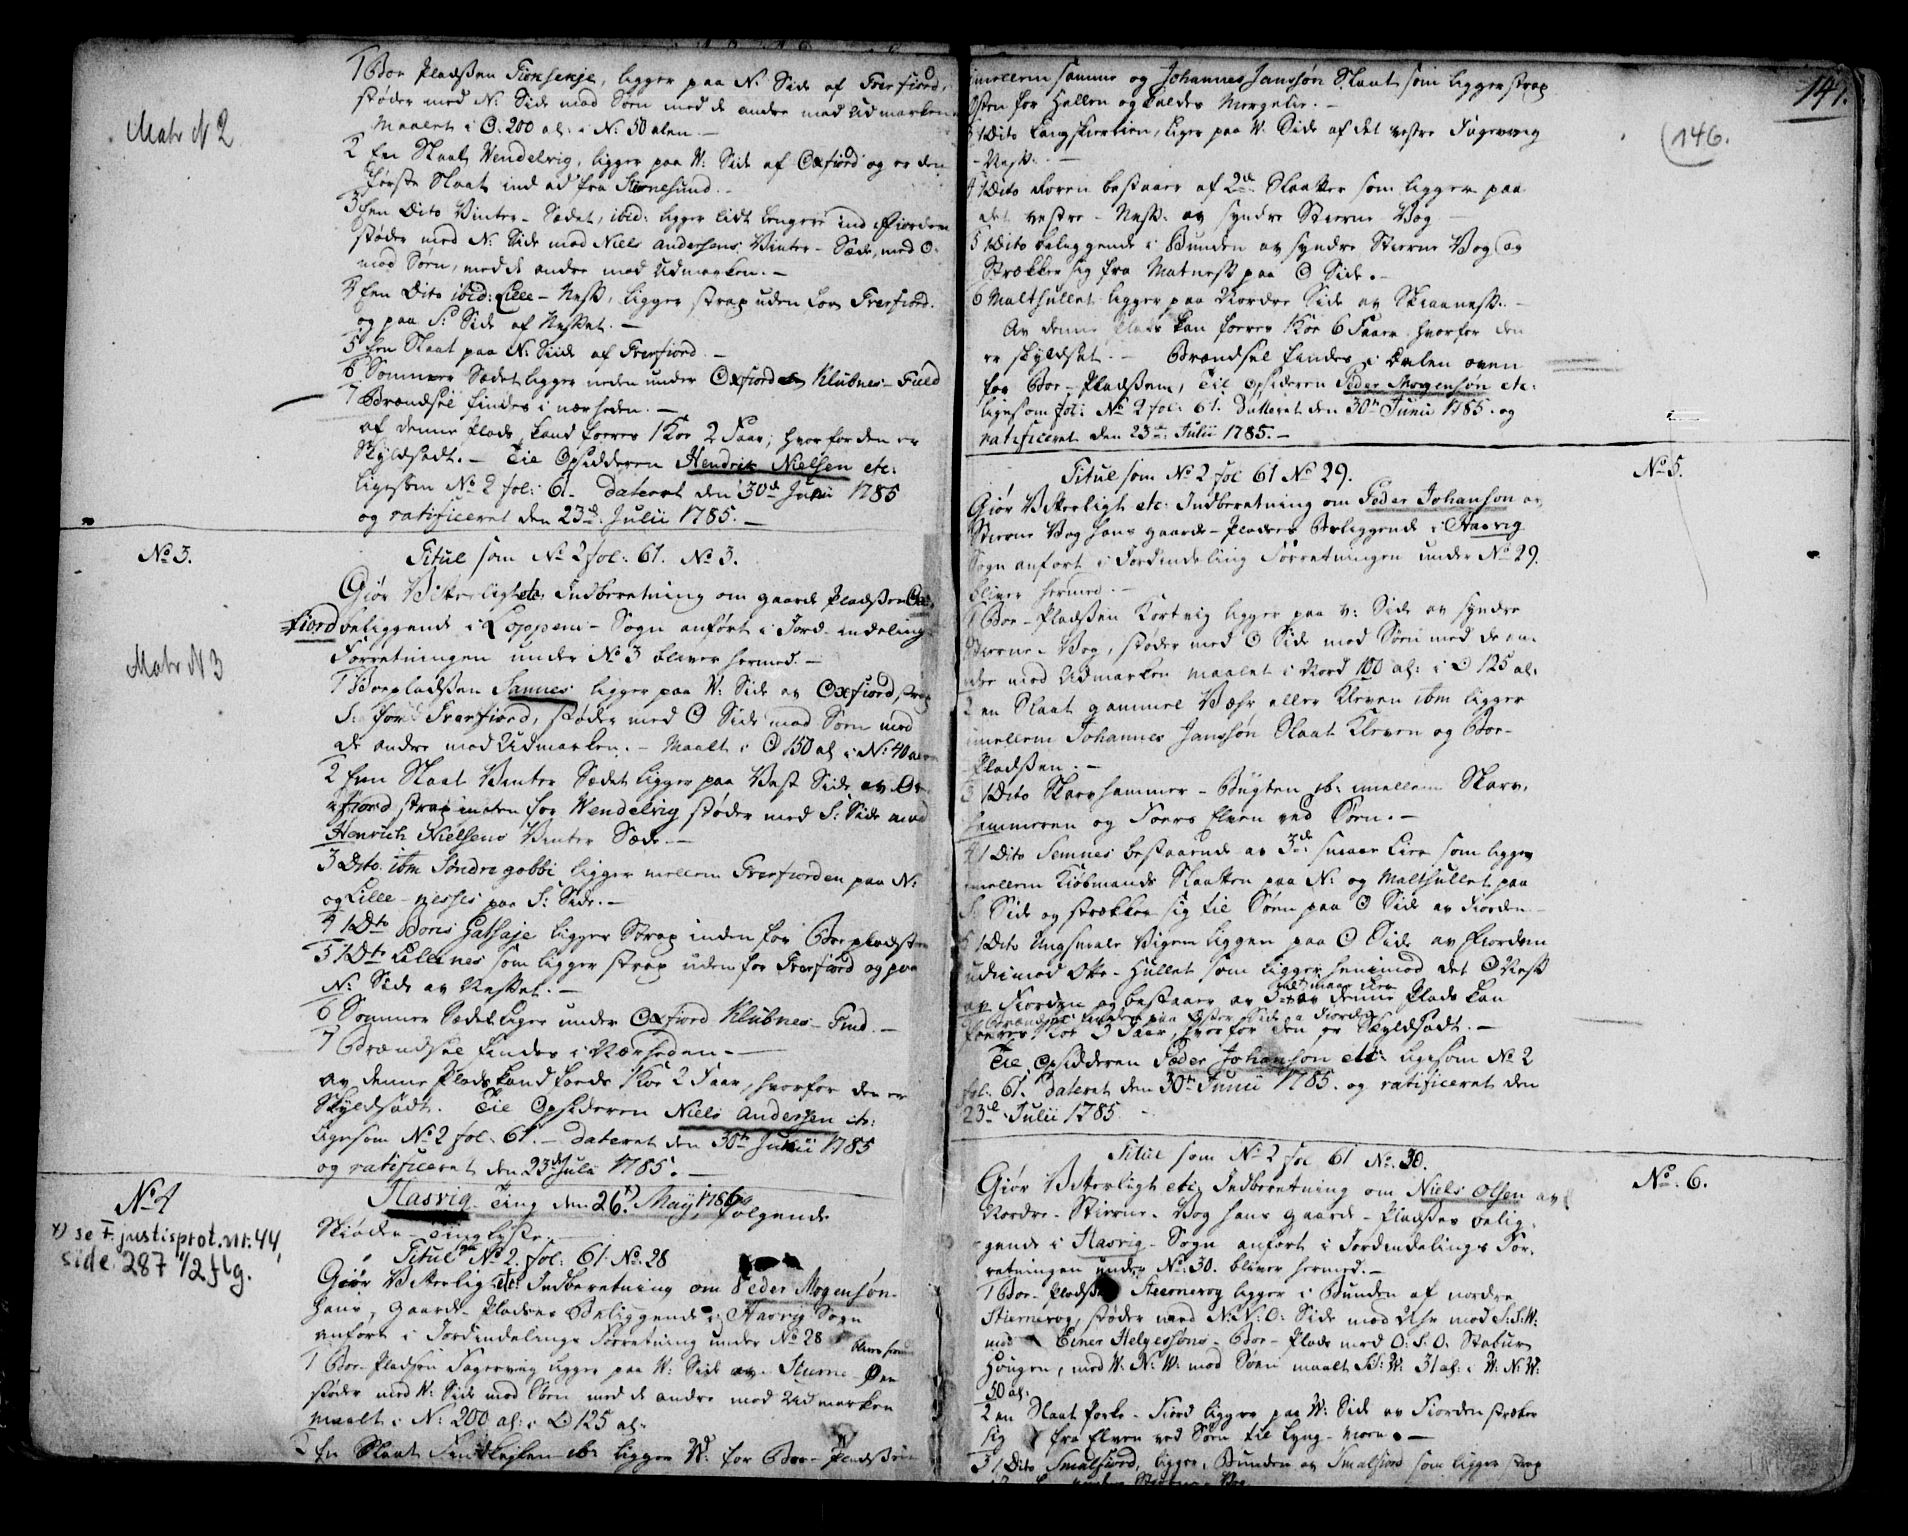 1 Boe Pladsen Fionsenje, ligger paa N: Side af Frerfiord,
støder med N: Side mod Søen med de andre mod Udmarken
Maalet i O: 200 al: i N. 50 alen —
Matr N 2
2 Een Slaat Wendelvig, ligger paa W: Side af Oxfiord og er den
første Slaat ind ad fra Stiernesund. —
3 Een Dito Vinter-Sædet, ibid: ligger lidt lengere ind i Fiorden
støder med N: Side mod Niels Andersens Vinter-Sæde, med O.
mod Søen, med de andre mod Udmarken. —
4 Een Dito ibid: Lille-Nesk, ligger strax uden for Frerfiord.
og paa S: Side af Nesket. —
5 Een Slaat paa N: Siide af Frerfiord. —
6 Sommer Sædet ligger neden under Oxfiord Klubnes-Field
7 Brændsel findes i nærheden. —
af denne Plads kand foeres 1 Koe 2 Faar; hvorfor den er
Skyldsadt. — Til Opsidderen Hendrik Nielsen etc:
ligesom No 2 fol: 61. Dateret den 30de Junii 1785
og ratificeret den 23de Julii 1785. —
No 3.
Titul som No 2 fol: 61. No 3.
Giør Vitterligt etc: Indberetning om gaarde Pladsen Ox-
fiord beliggende i Loppens-Sogn anført i Jord-indelings
Forretningen under No 3 bliver hermed. —
Matr N 3
1 Boepladsen Sannes ligger paa W: Side av Oxfiord, strax
S: for Frerfiord, støder med O Side mod Søen med
de andre mod Udmarken. — Maalt i O 150 al i N: 40 alen
2 Een Slaat Vinter Sædet ligger paa Vest Side av Ox-
fiord strax inden for Wendelvig støder med S: Side mod
Henrich Nielsens Vinter Sæde. —
3 Dito ibm Søndre gobbi ligger mellem Frerfiorden paa N:
og Lille-nesses paa S: Side. —
4 1 Dto Boris Gatsaje ligger Strax inden for Boepladsen
5 1 Dto Lillenes som ligger strax uden for Frerfiord og paa
N: Side av Nesket. —
6 Sommer Sædet liger under Oxfiord Klubnes-Find. —
7 Brændsel findes i Nærheden. —
av denne Plads kand foeds 1 Koe 2 Faar, hvorfor den er
Skyldsadt. Til Opsideren Niels Anderssen etc:
ligesom No 2 fol: 61. — Dateret den 30te Junii 1785
og ratificeret den 23de Julii 1785. —
No 4
Hasvig Ting den 26. x) May 1786, følgende
Skiøder-Tinglyste. —
x) se F. justisprot. nr. 44,
side 287 1/2 flg.
Titul som No 2. fol: 61. No. 28
Giør Vitterligt etc: Indberetning om Peder Mogensøn
hans Gaards-Pladses Beliggende i Hasvig Sogn
anført i Jordindelings Forretning under No 28 bliver herm
1 Boe-Pladsen Fagervig ligger paa W: Side av Stierne-Øen
støder med W: Side mod Søen med de andre mod Udmarken
maalt i N: 200 al: i O 125 al:
2 En Slaat ibm ligger W: for Boe-Pladsen
147.
(146.
imellem samme og Johannes Janssøn Slaat som ligger strax
Østen for Hellen og kaldes Mergelie. —
3 1 Dito Langskierlien, liger paa W: Side af det vestre Fagervig
-Nesk. —
4 1 Dito Foren bestaar af 2de Slaatter som ligger paa
det vestre-Nesk. av syndre Stierne-Vog —
5 1 Dito beliggende i Bunden av syndre Stierne Vog og
Strækker sig fra Matnesk paa O Side. —
6 Malthullet ligger paa Nordre Side av Skaanesk. —
Av denne Plads kan foeres 1 Koe 6 Faar hvorfor den
er skyldsat. — Brændsel findes i Dalen oven
for Boe-Pladsen, Til Opsideren Peder Mogensøn etc:
ligesom fol: No 2 fol: 61. Dateret den 30te Junii 1785. og
ratificeret den 23de Julii 1785. —
No 5.
Titul som No 2 fol 61 No 29.
Giør Vitterligt etc: Indberetning om Peder Johanson av
Stierne Vog hans gaards-Pladses Beliggende i Hasvig
Sogn anført i Jordindeling Forretningen under No 29.
bliver hermed. —
1 Boe-Pladsen Kortvig ligger paa v: Side av syndre
Stierne-Vog, støder med O Side mod Søen med de an-
dre mod Udmarken maalet i Nord 100 al: i O 125 al:
2 en Slaat gammel Væhr eller Kleven ibm ligger
imellem Johannes Janssøn Slaat Kleven og Boe-
Pladsen. —
3 1 Dito Skarvhammer-Bugten ib: imellem Skarv-
hammeren og Foers Elven ved Søen. —
4 1 Dito Semnes bestaaende av 3de smaae Lier som ligger
imellem Kiøbmands Slaatten paa N: og Malthullet paa
S: Side og strækker sig til Søen paa O Side av Fiorden —
5 1 Dito Ungsmale Vigen liggen paa O Side av Fiorden
udi mod Oke-Hullet som ligger henimod det O Nesk
av Fiorden og bestaar av 3de smaae Lier av denne Plads kan
6 Brændsel findes paa Øster Side i Fiorden
foeres 1 Koe 3 Faar, hvorfor den er Skyldsadt. —
Til Opsidderen Peder Johanson etc: ligesom No 2
fol: 61. dateret den 30te Junii 1785. og ratificeret den
23de Julii 1785. —
No. 6.
Titul som No 2 fol 61 No. 30.
Giør Vitterligt etc: Indberetning om Niels Olsen av
Nordre-Stierne-Vog hans gaards-Pladses belig-
gende i Hasvig-Sogn anført i Jordindelings For-
retningen under No: 30. bliver hermed. —
1 Boe-Pladsen Stiernevog ligger i Bunden af nordre
Stiernevog, støder med N: N: O: Side mod Ase med S: S: W:
mod Einer Helgessøns-Boe-Plads med O: S: O: Stabur
Hougen, med W: N: W: mod Søen maalt S: W: 31 al: i W: N: W:
50 al:
2 en Slaat Forke-Fiord ligger paa W: Side av Fiorden strekker
sig fra Elven ved Søen til Lyng-moen. —
3 1 Dito Smalfiord, ligger i Bunden av Smalfiord som ligger strax